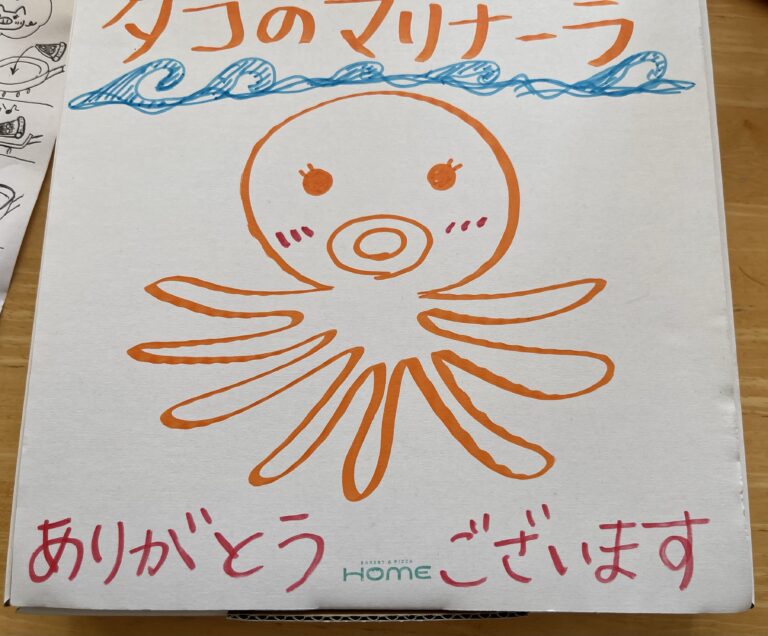 タコのマリナーラ
ありがとう ございます
HOME